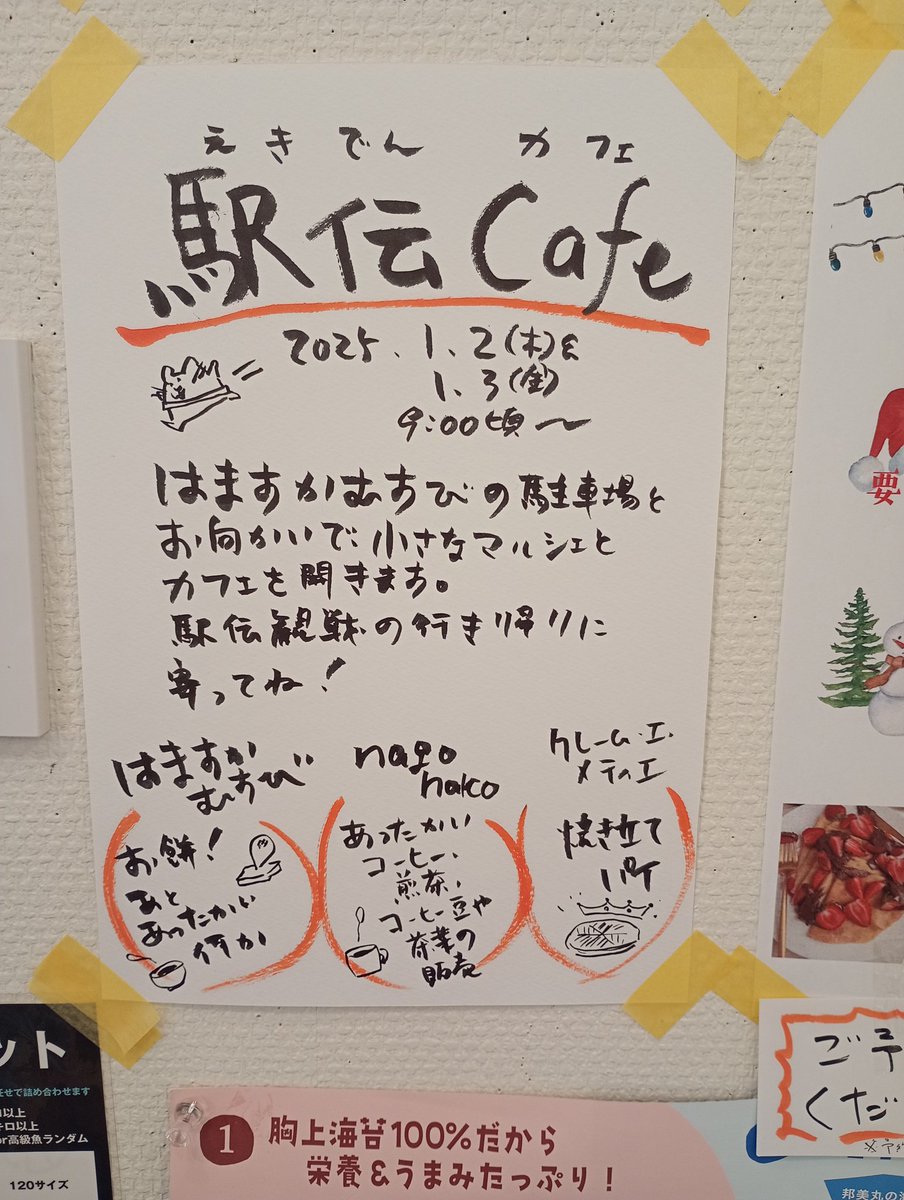 えきでん カフェ
駅伝 Cafe
2025.1.2(木)と
1.3(金)
9:00頃〜
はますかむすびの駐車場と
お向かいで小さなマルシェと
カフェを開きます。
駅伝観戦の行き帰りに
寄ってね!
はますか
むすび
お餅!
あと
あったかい
何か
nago
nako
あったかい
コーヒー、
煎茶、
コーヒー豆や
茶葉の
販売
クレーム・エ・
メティエ
焼き立て
パイ
要
ご予
くだ
ット
任せで詰め合わせます
ロ以上
キロ以上
or高級魚ランダム
120サイズ
1 胸上海苔100%だから
栄養&うまみたっぷり!
邦美丸の